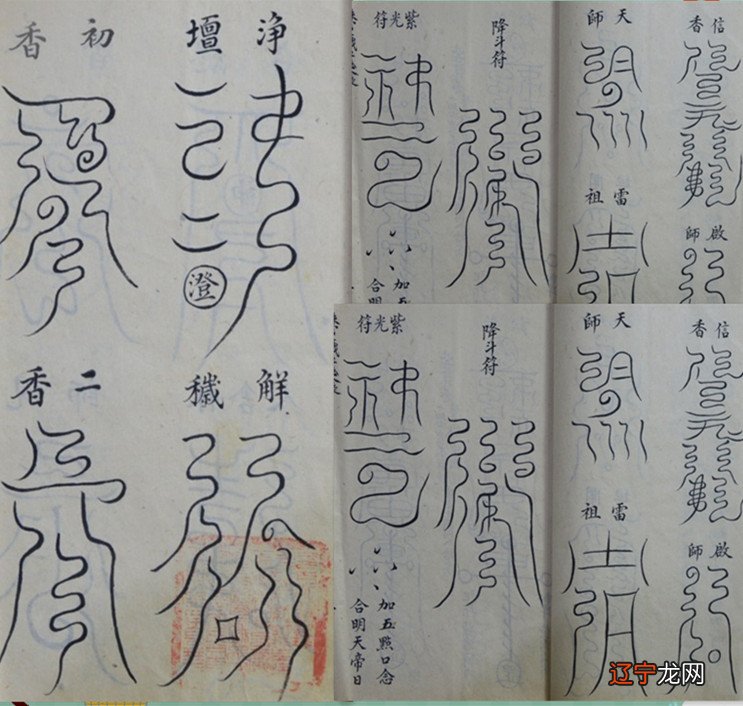 浄壇
澄
初香
解穢
二香
信香
啟師
天師
雷祖
降斗符
紫光符
加五
合明
信香
啟師
天師
雷祖
降斗符
紫光符
加五點口念
合明天帝日
辽宁龙网